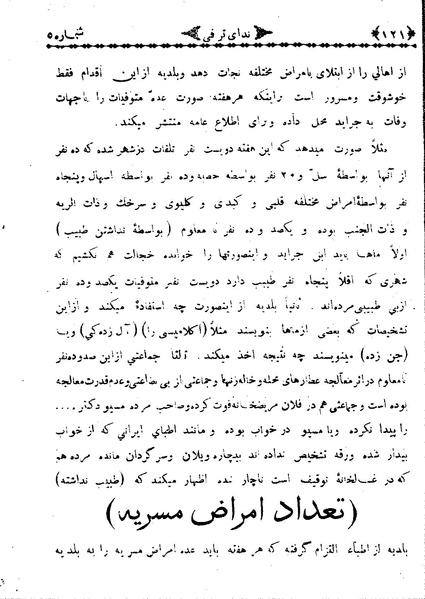 شماره ۵ ندای ترقی ﴿۱۲۱﴾
از اهالی را از ابتلای بامراض مختلفه نجات دهد وبلدیه از این اقدام فقط
خوشوقت ومسرور است براینکه هر هفته صورت عدهٔ متوفیات را باجهات
وفات به جراید محل داده و برای اطلاع عامه منتشر میکند.
مثلاً صورت میدهد که این هفته دویست نفر تلفات در شهر شده که ده نفر
از آنها بواسطهٔ سل و ۲۰ نفر بواسطه حصبه و ده نفر بواسطه اسهال وپنجاه
نفر بواسطهٔ امراض مختلفه قلبی و کبدی و کلیوی و سرخك و ذات الریه
و ذات الجنب بوده و یکصد و ده نفر نا معلوم (بواسطهٔ نداشتن طبیب)
اولاً ماها باید این جراید و اینصورتها را خوانده خجالت هم نکشیم که
شهری که اقلاً پنجاه نفر طبیب دارد دویست نفر متوفیات یکصد وده نفر
از بی طبیبی مرده‌اند . ثانیاً بلدیه از اینصورت چه استفادهٔ میکند و از این
تشخیصات که بعضی از مها بنویسند مثلاً (اکلامپسی را) (آل زده کی) ویا
(جن زده) مینویسند چه نتیجه اخذ میکند. ثالثاً جماعتی از این صد وده نفر
نامعلوم در اثر معالجه عطارهای محله وخاله زنها وجماعتی از بی بضاعتی وعدم قدرت معالجه
بوده است وجماعتی هم در فلان مریضخانه فوت کرده وصاحب مرده مسیو دکتر ....
را پیدا نکرده ویا مسیو در خواب بوده و مانند اطبای ایرانی که از خواب
بیدار شده ورقه تشخیص نداده‌اند بیچاره ویلان وسرگردان مانده مرده هم
که در غسالخانهٔ توقیف است ناچار شده اظهار میکند که (طبیب نداشته)
(تعداد امراض مسریه)
بلدیه از اطباء التزام گرفته که هر هفته باید عده امراض مسریه را به بلدیه